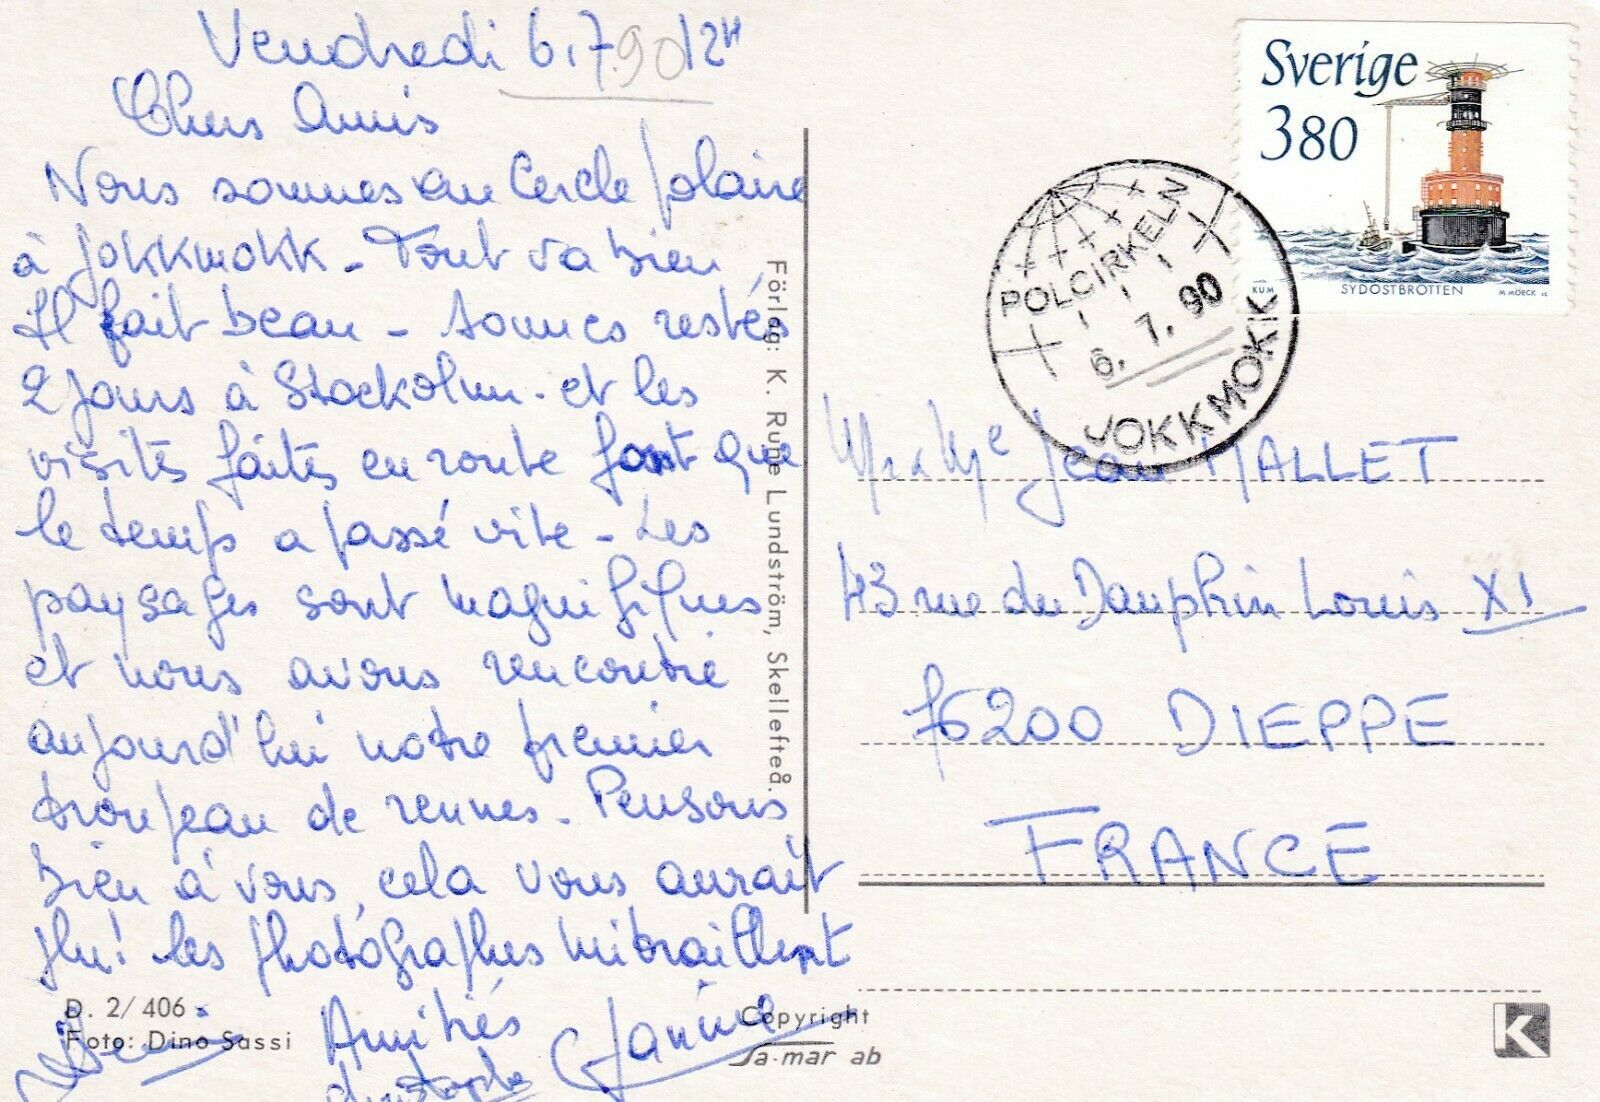 Vendredi 6.7.90 12H
Chers Amis
Nous sommes au Cercle polaire
à Jokkmokk - Tout va bien,
Il fait beau - Sommes restés
2 jours à Stockolm. et les
visites faites en route font que
le temps a passé vite - Les
paysages sont magnifiques
et nous avons rencontré
aujourd'hui notre premier
troupeau de rennes. Pensons
bien à vous, cela vous aurait
plu! les photographes mitraillent
Amitiés
Christophe
Janine
D. 2/406
Foto: Dino Sassi
Förlag: K. Rune Lundström, Skellefteå.
Copyright
Sa-mar ab
Sverige
380
KUM
SYDOSTBROTTEN
M MÖRCK SC
POLCIRKELN
6. 7. 90
JOKKMOKK
Mr & Me Jean MALLET
43 rue du Dauphin Louis XI
76200 DIEPPE
FRANCE
K